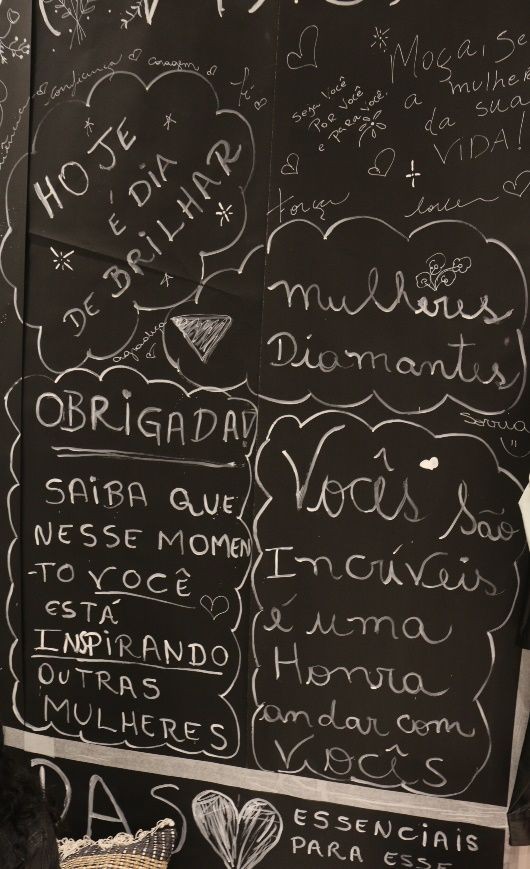 confiança
coragem
fé
HOJE
É DIA
DE BRILHAR
Seja você
POR VOCÊ
e PARA VOCÊ.
Moça, Se
a mulher
da sua
VIDA!
Força
mulheres
Diamantes
OBRIGADA!
SAIBA QUE
NESSE MOMEN
-TO VOCÊ
ESTÁ
INSPIRANDO
OUTRAS
MULHERES
Sorria
Vocês são
Incríveis
é uma
Honra
andar com
VOCÊS
DAS
ESSENCIAIS
PARA ESSE